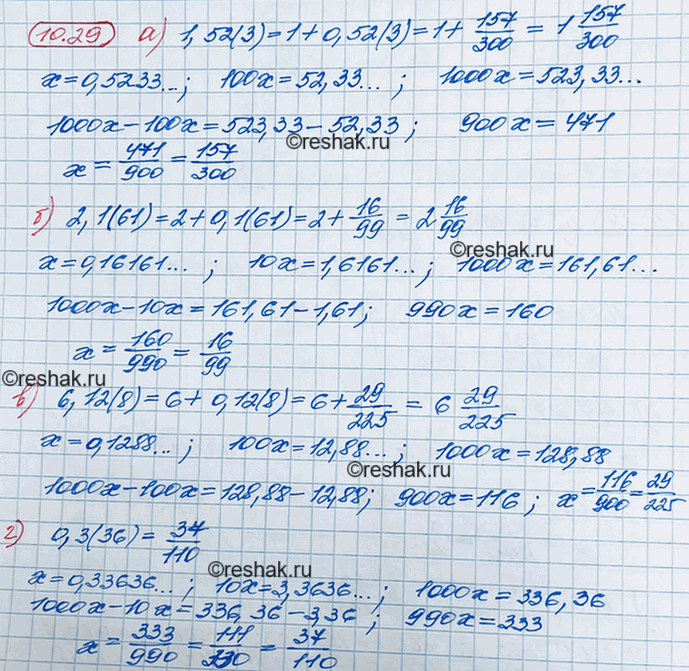 10.29 а) 1,52(3)=1+0,52(3)=1+157/300=1 157/300
x=0,5233...; 100x=52,33...; 1000x=523,33...
1000x-100x=523,33-52,33; 900x=471
©reshak.ru
x=471/900=157/300
б) 2,1(61)=2+0,1(61)=2+16/99=2 16/99
©reshak.ru
x=0,16161...; 10x=1,6161...; 1000x=161,61...
1000x-10x=161,61-1,61; 990x=160
x=160/990=16/99
©reshak.ru
в) 6,12(8)=6+0,12(8)=6+29/225=6 29/225
x=0,1288...; 100x=12,88...; 1000x=128,88
©reshak.ru
1000x-100x=128,88-12,88; 900x=116; x=116/900=29/225
г) 0,3(36)=37/110
©reshak.ru
x=0,33636...; 10x=3,3636...; 1000x=336,36
1000x-10x=336,36-3,36; 990x=333
x=333/990=111/330=37/110
©reshak.ru